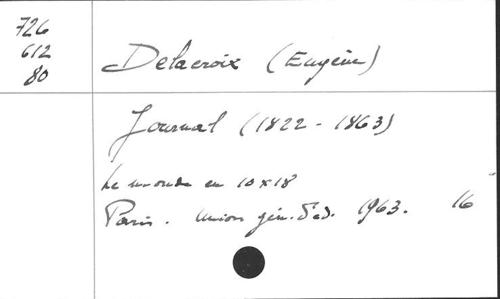 726
612
80
Delacroix (Eugène)
Journal (1822 - 1863)
Le monde en 10x18
Paris. Union gén. d'éd. 1963. 16